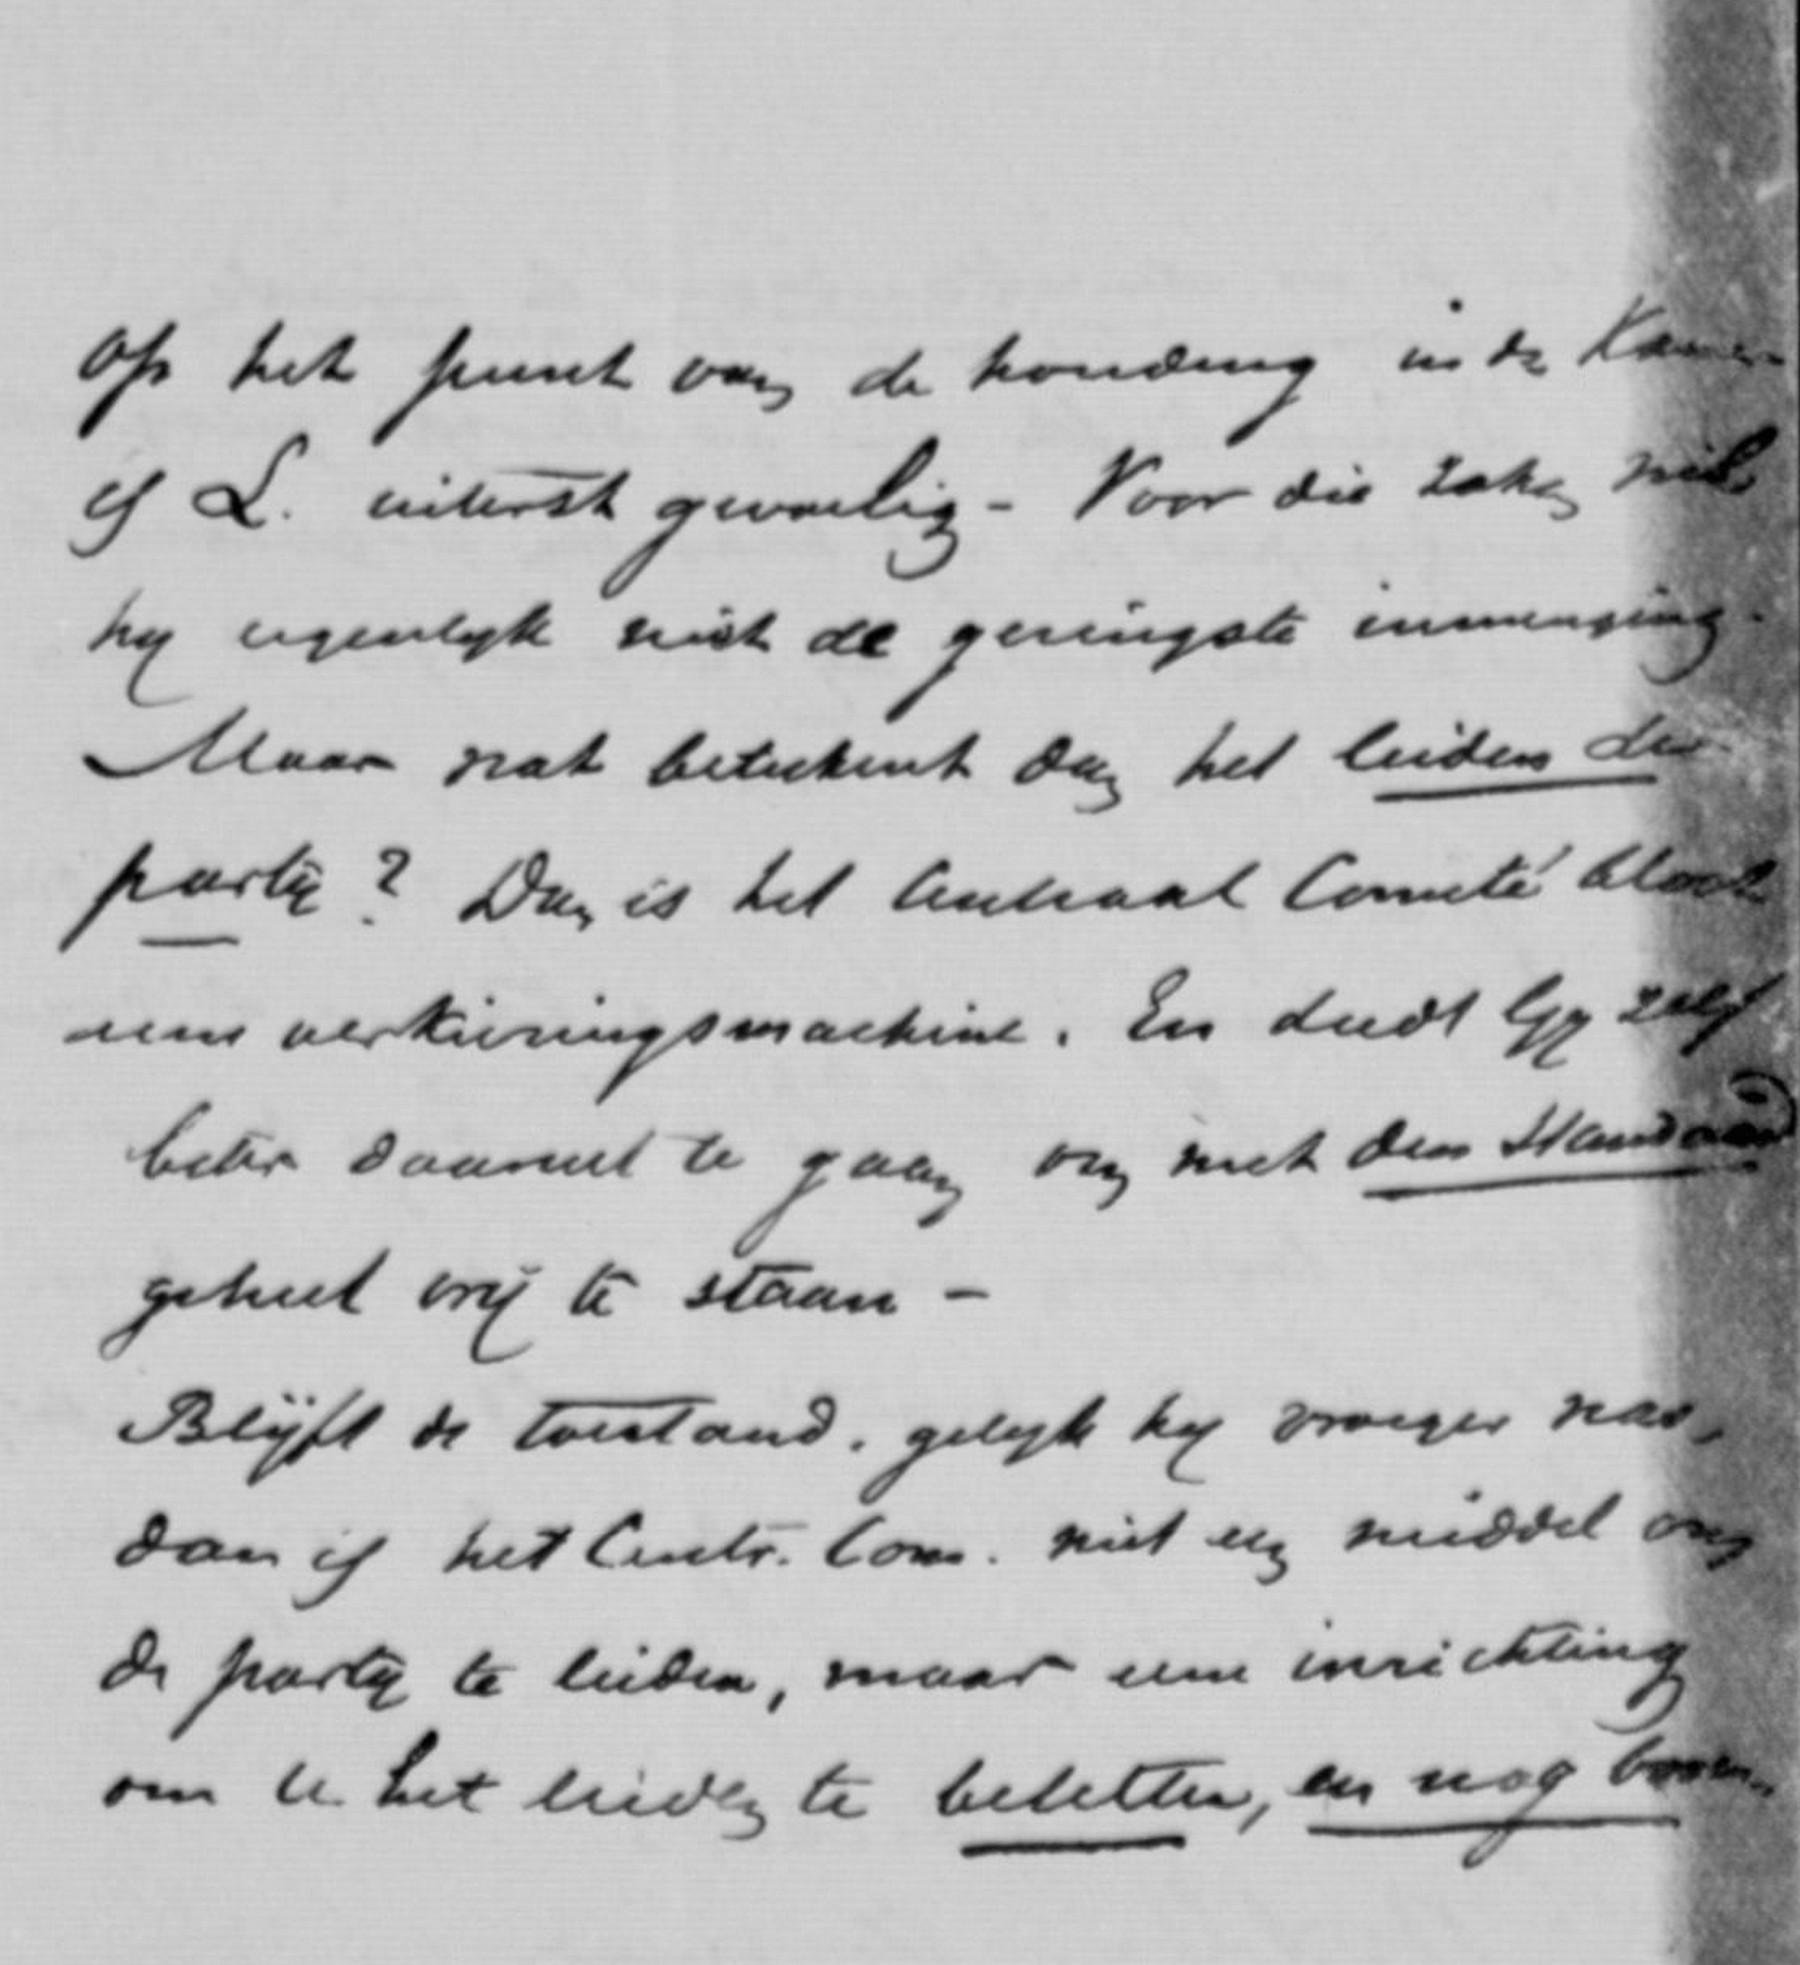 op het punt van de houding in de Kamer
is L. uiterst gevoelig - Voor die zaken wil
hij eigenlijk niet de geringste inmenging.
Maar wat beteekent dan het leiden der
partij? Dan is het Centraal Comité bloot
eene verkiezingsmachine. En deedt Gij zelf
beter daaruit te gaan om met den Standaard
geheel vrij te staan -
Blijft de toestand, gelijk hij vroeger was,
dan is het Centr. Com. niet een middel om
de partij te leiden, maar eene inrichting
om U het leiden te beletten, en nog boven-